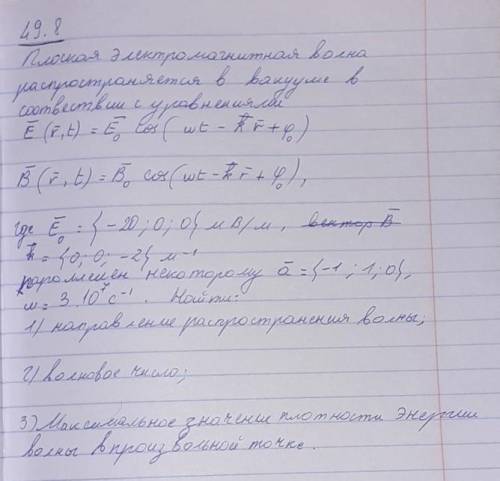 49.8
Плоская электромагнитная волна
распространяется в вакууме в
соотвествии с уравнениями
E̅(r̅,t) = E̅₀ cos(ωt - k⃗ r̅ + φ₀)
B̅(r̅,t) = B̅₀ cos(ωt - k⃗ r̅ + φ₀),
где E̅₀ = {-20; 0; 0} мВ/м, вектор B̅
k⃗ = {0; 0; -2} м⁻¹
параллелен некоторому a̅ = {-1; 1; 0},
ω = 3 · 10⁷ с⁻¹. Найти:
1) направление распространения волны;
2) волновое число;
3) Максимальное значение плотности энергии
волны в произвольной точке.